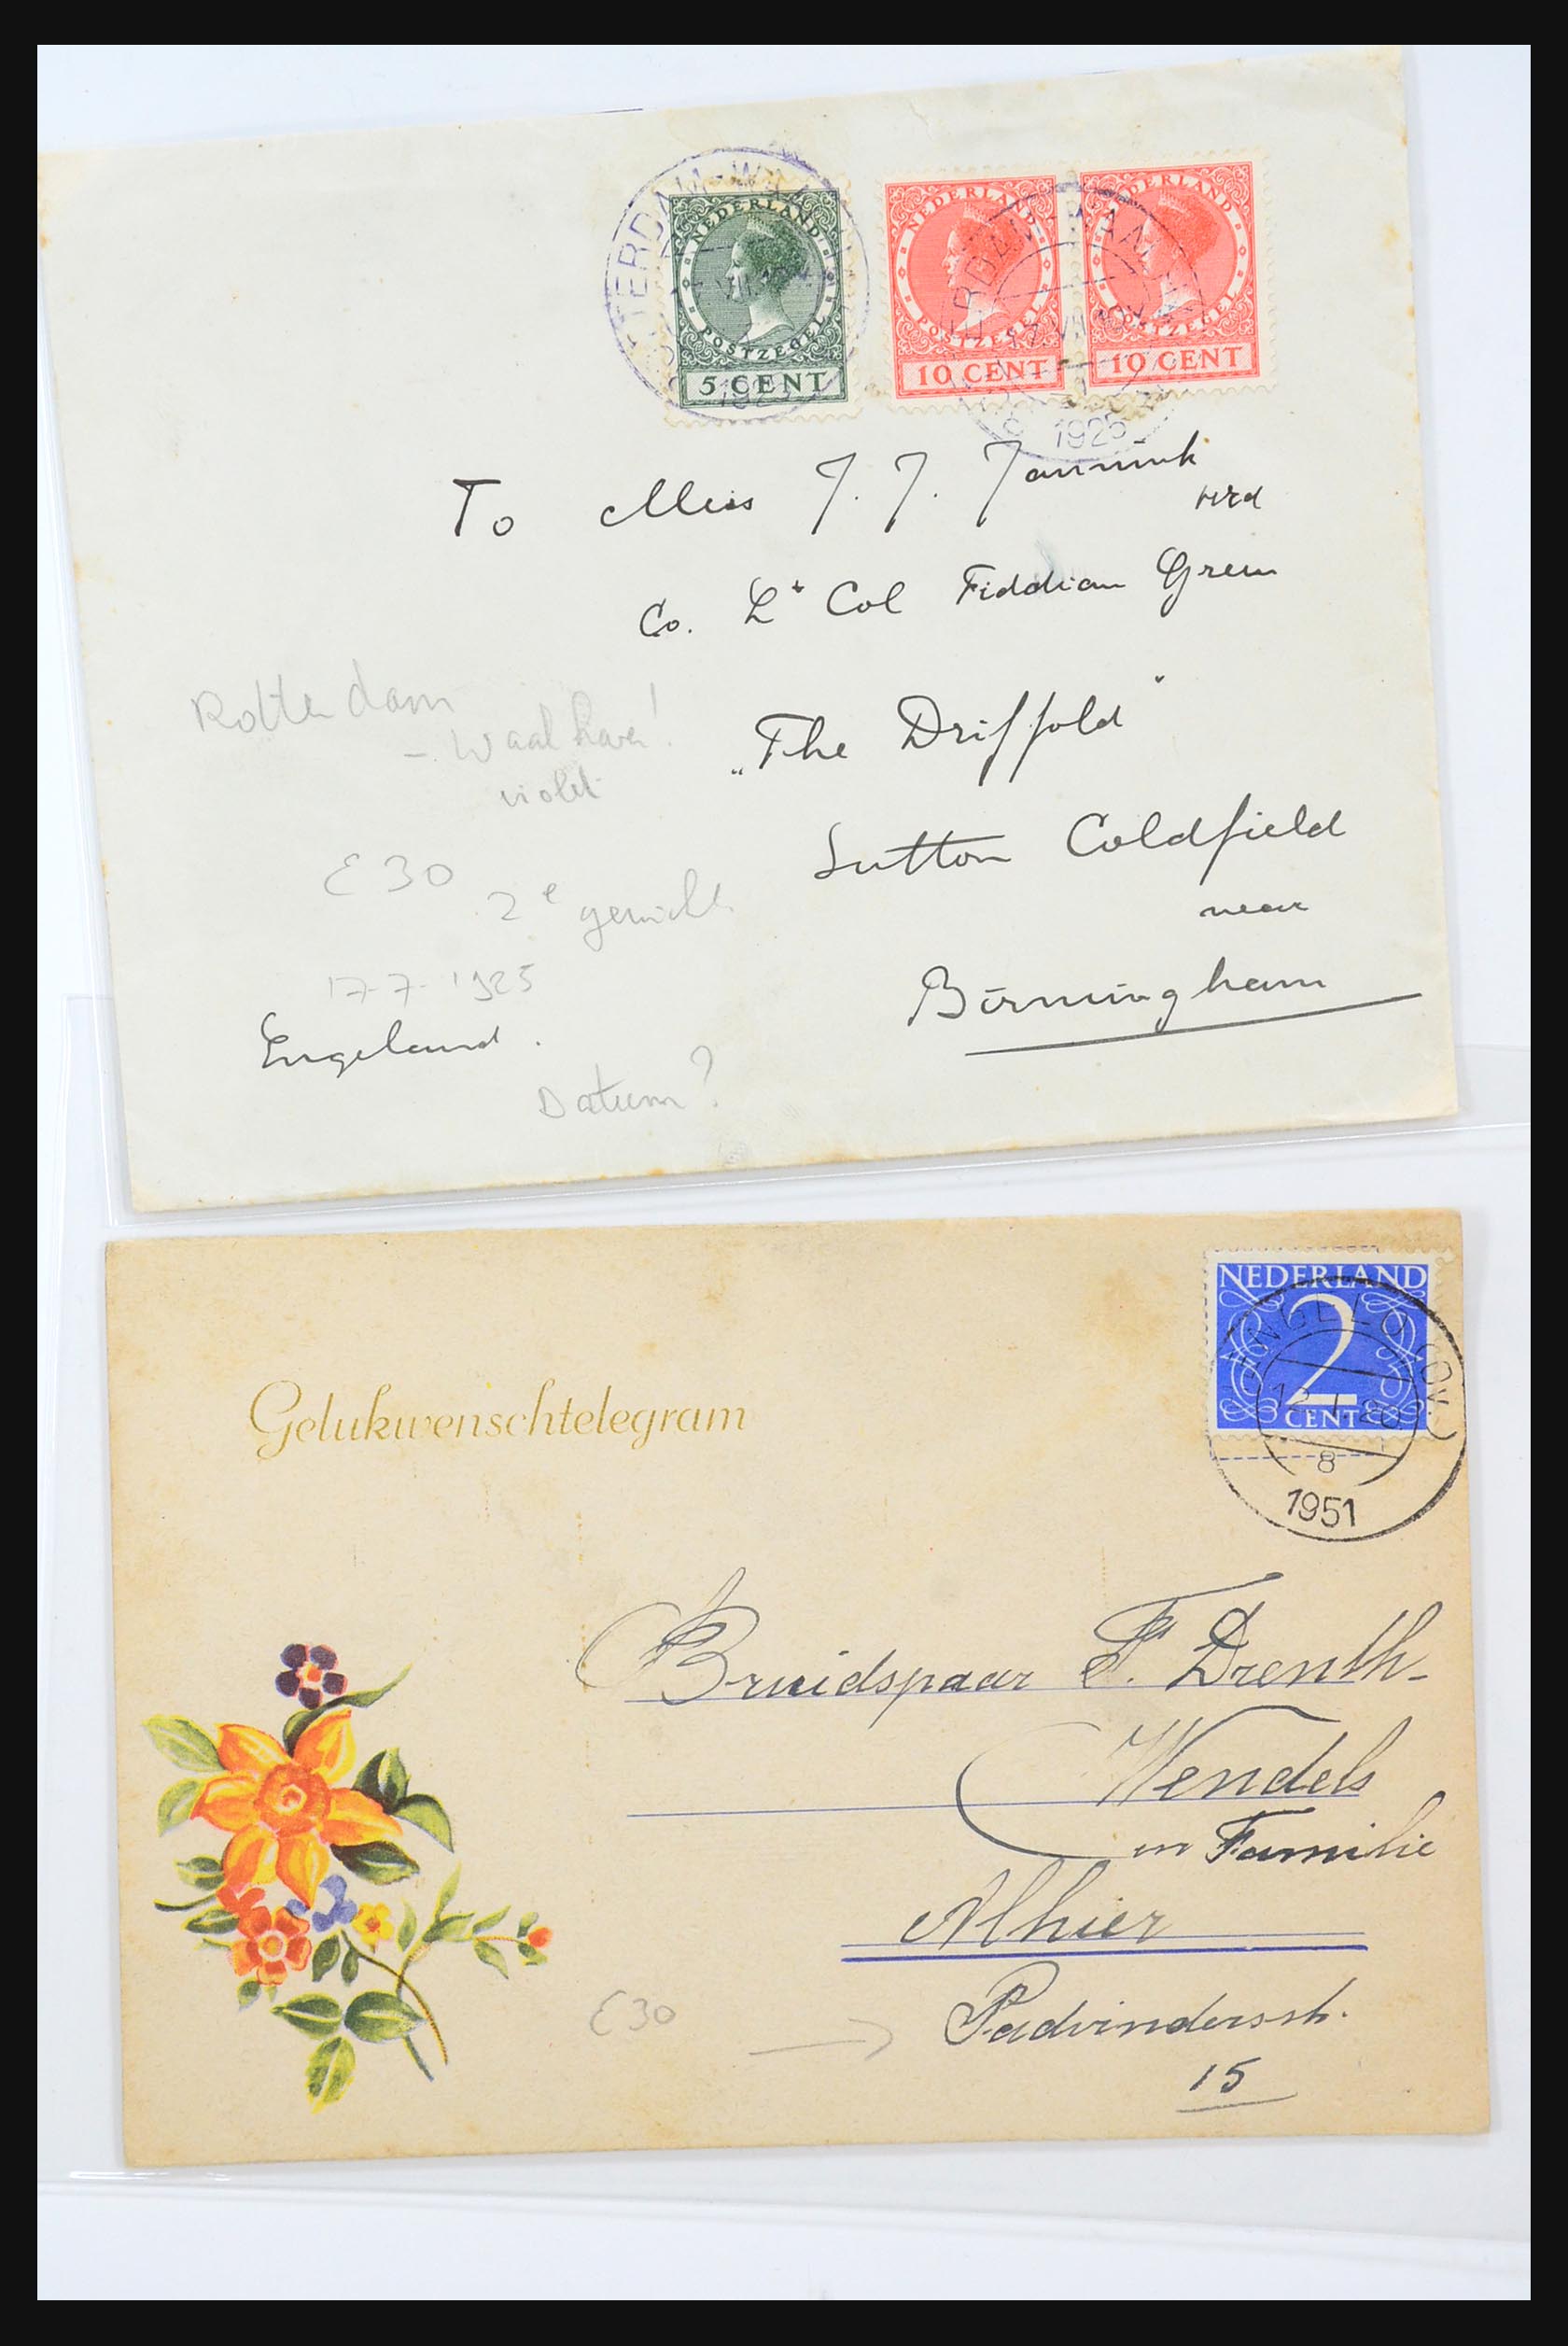 NEDERLAND
POSTZEGEL
5 CENT
NEDERLAND
POSTZEGEL
10 CENT
NEDERLAND
POSTZEGEL
10 CENT
1925
To Miss J. J. Jannink
Co. Lt Col Fiddian Green
„The Driffold"
Sutton Coldfield
near
Birmingham
Engeland.
Rotterdam
- Waalhaven!
violet
£30
2e gewicht
17-7-1925
Datum?
NEDERLAND
2
CENT
12.1.20
8
1951
Gelukwenschtelegram
Bruidspaar F. Drenth-
Wendels
en Familie
Alhier
Padvindersstr.
15
£30